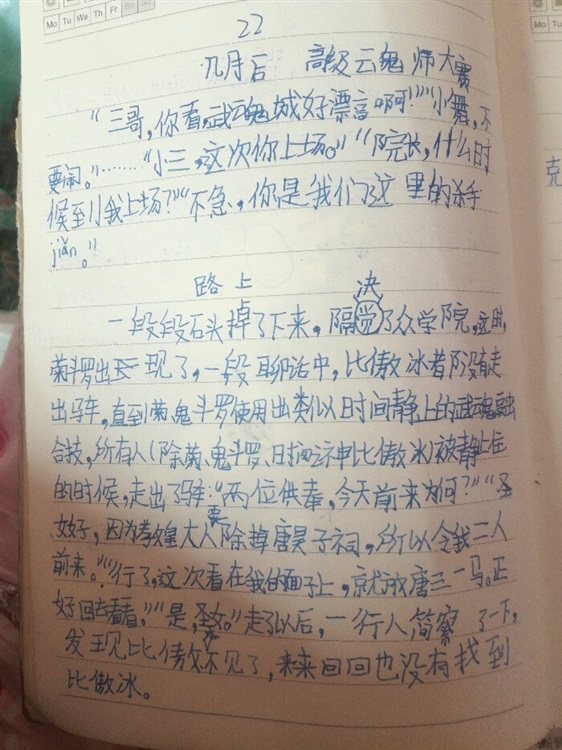 Mo Tu We Th Fr Sa Su
22
几月后 高级云鬼师大赛
“三哥，你看，武魂城好漂亮啊！”“小舞，不
要闹。”……“小三，这次你上场。”“院长，什么时
候到我上场？”“不急，你是我们这里的杀手
jiǎn。”
路上
决
一段段石头掉了下来，隔觉了众学院，这时，
菊斗罗出现了，一段聊话中，比傲冰者阝没有走
出马车，直到菊、鬼斗罗使用出类似时间静止的武魂融
合技，所有人（除菊、鬼斗罗、比傲冰）被静止住
的时候，走出了马车：“两位供奉，今天前来为何？”“圣
女好，因为教皇大人要除掉唐昊子祠，所以令我二人
前来。”“行了，这次看在我的面子上，就放唐三一马。正
好回去看看，”“是，圣女。”走了以后，一行人简察了一下，
发现比傲冰不见了，来来回回也没有找到
比傲冰。
克